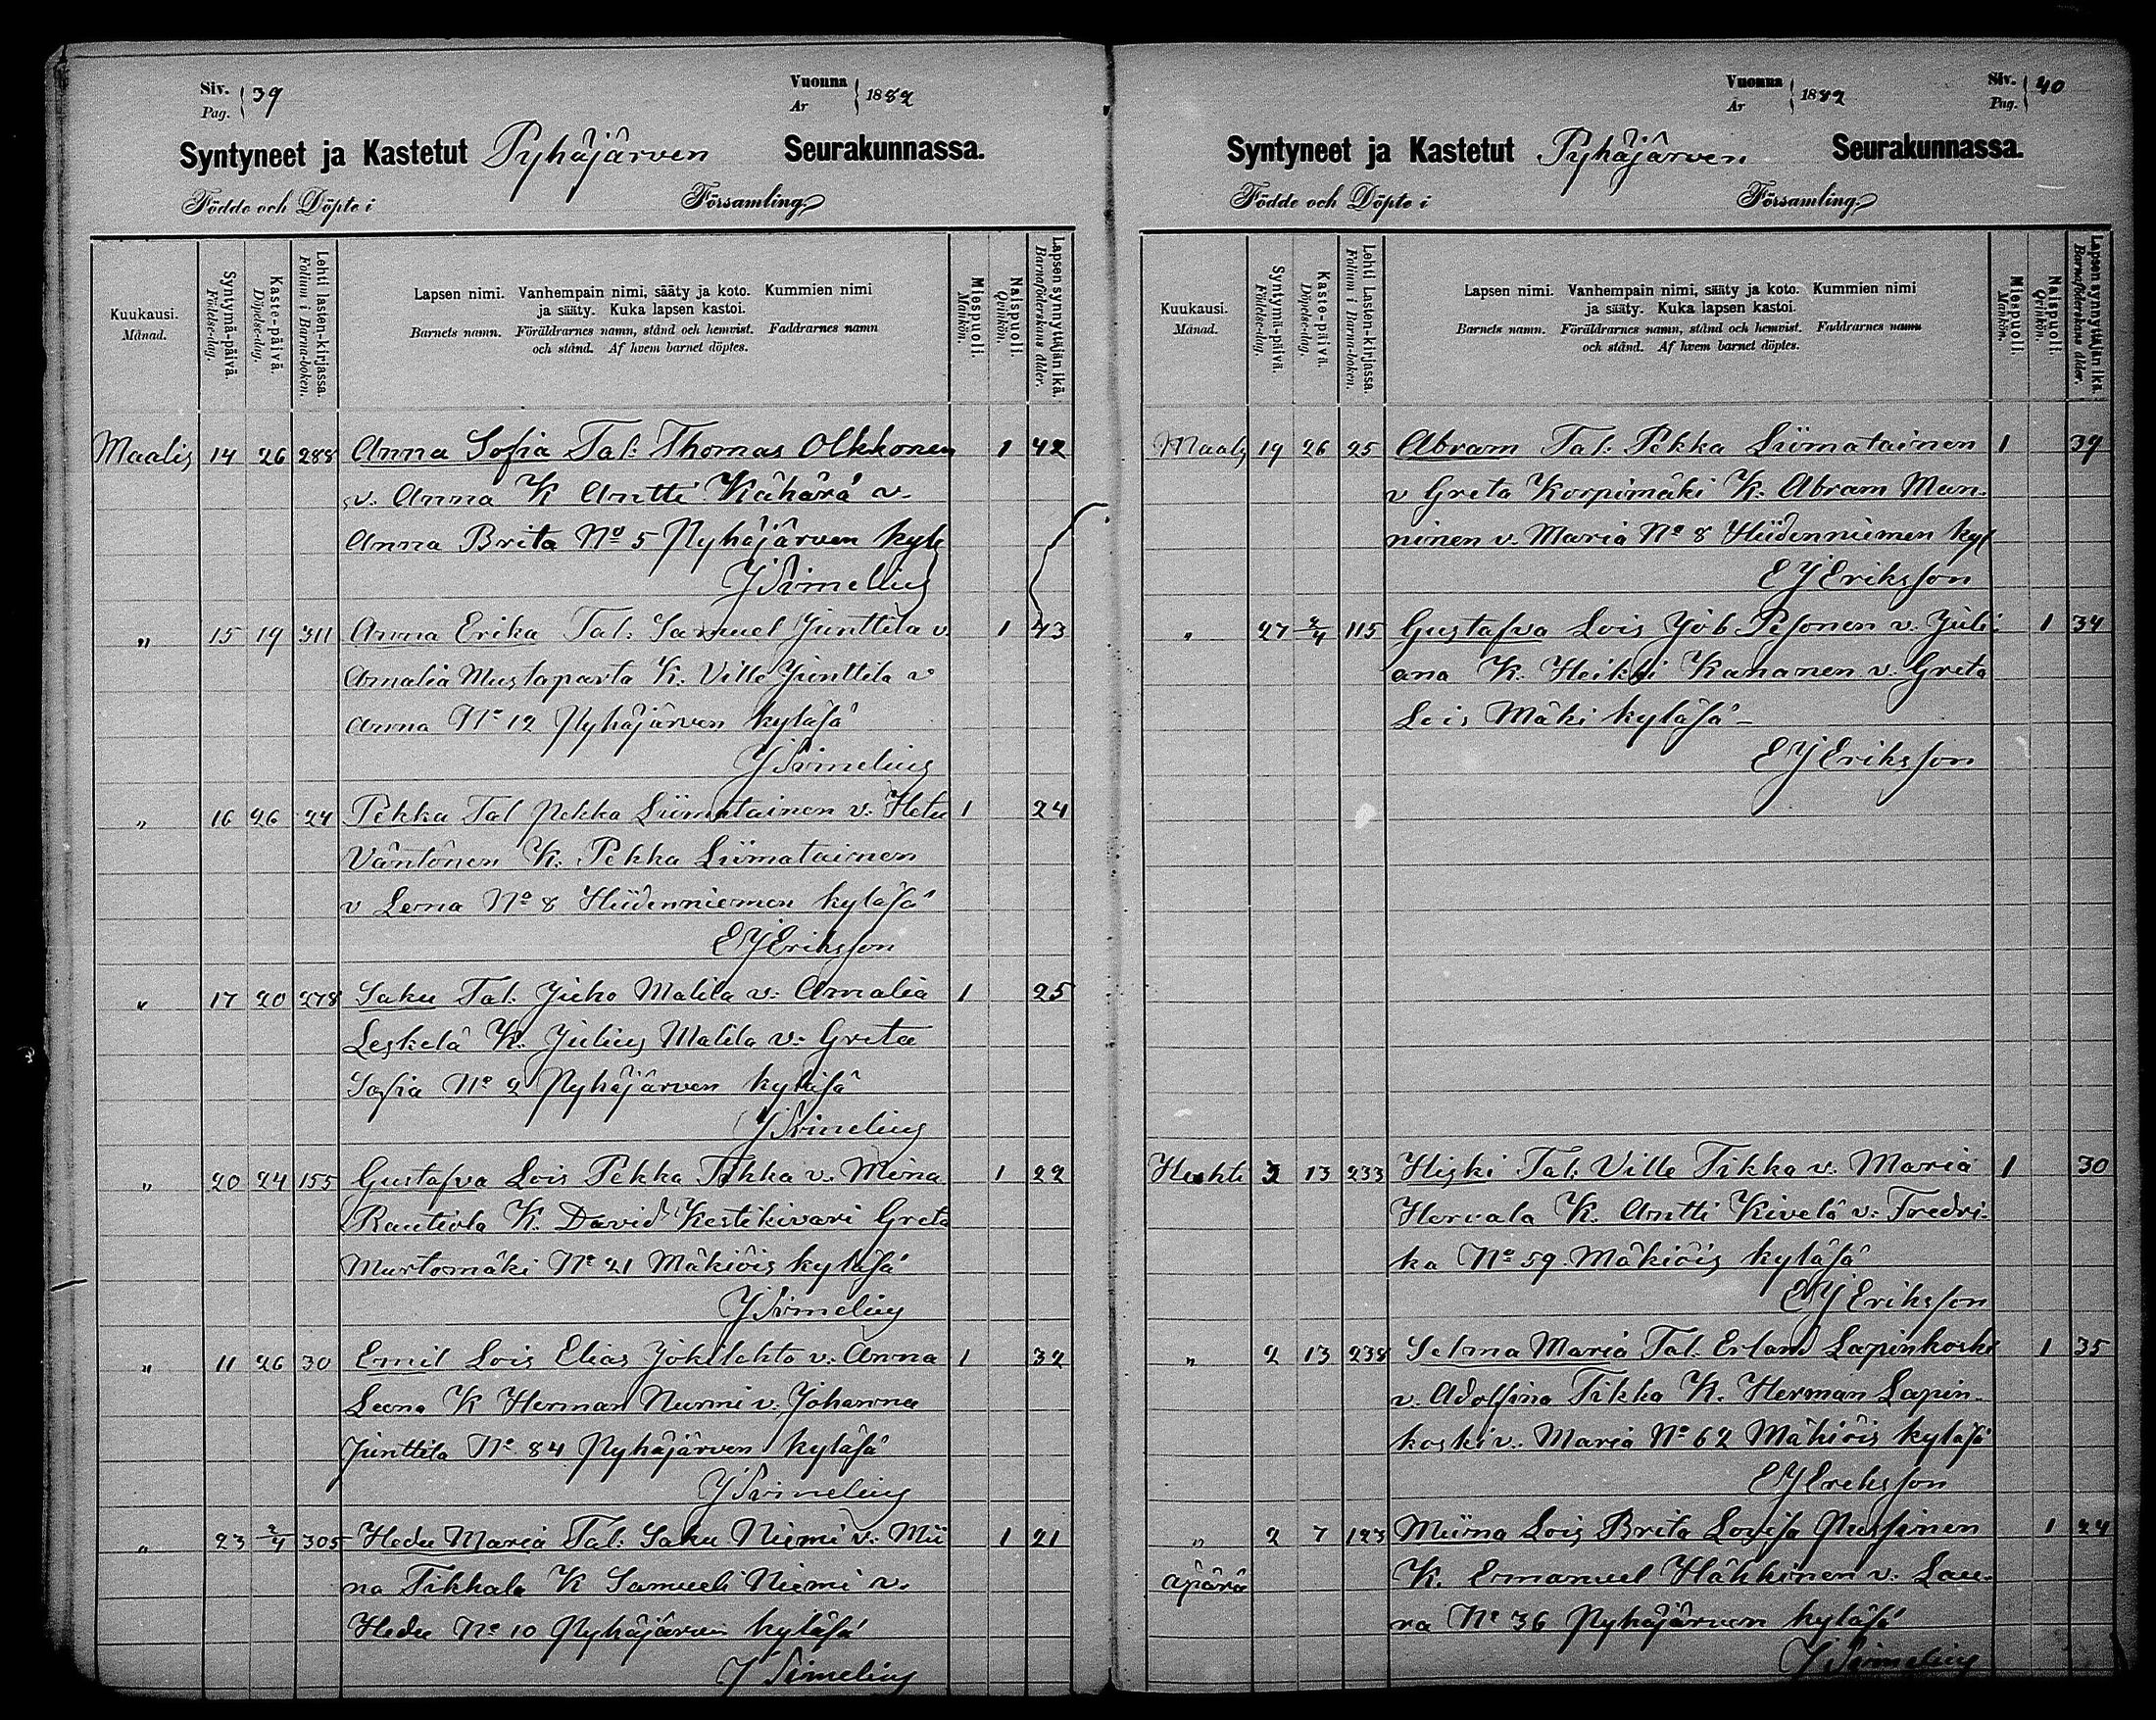 Siv. Pag. 39
Vuonna År 1882
Syntyneet ja Kastetut Pyhäjärven Seurakunnassa.
Födde och Döpte i Församling.
Kuukausi. Månad.
Syntymä-päivä. Födelse-dag.
Kaste-päivä. Döpelse-dag.
Lehti lasten-kirjassa. Folium i Barna-boken.
Lapsen nimi. Vanhempain nimi, sääty ja koto. Kummien nimi
ja sääty. Kuka lapsen kastoi.
Barnets namn. Föräldrarnes namn, stånd och hemvist. Faddrarnes namn
och stånd. Af hvem barnet döptes.
Miespuoli. Mankön.
Naispuoli. Qvinkön.
Lapsen synnyttäjän ikä. Barnaföderskans ålder.
Maalis 14 26 288 Anna Sofia Tal: Thomas Olkkonen 1 42
v. Anna K Antti Kähärä v.
Anna Brita No 5 Pyhäjärven kylä
J Simelius
" 15 19 311 Anna Erika Tal: Samuel Junttila v. 1 43
Amalia Mustaparta K. Ville Junttila v
Anna No 12 Pyhäjärven kyläsä
J Simelius
" 16 26 24 Pekka Tal Pekka Liimatainen v: Hetu 1 24
Väntönen K: Pekka Liimatainen
v Lena No 8 Hiidenniemen kyläsä
E J Eriksson
" 17 20 278 Saku Tal: Juho Malila v: Amalia 1 25
Leskelä K. Julius Malila v: Greta
Sofia No 2 Pyhäjärven kyläsä
J Simelius
" 20 24 155 Gustafva Lois Pekka Tikka v: Mina 1 22
Rautiola K. David Kestikivari Greta
Murtomäki No 21 Mäkiöis kyläsä
J Simelius
" 11 26 30 Emil Lois Elias Jokilehto v: Anna 1 32
Leena K Herman Nurmi v: Johanna
Junttila No 84 Pyhäjärven kyläsä
J Simelius
" 23 2/4 305 Hedu Maria Tal: Saku Niemi v: Mii 1 21
na Tikkala K Samueli Niemi v.
Hedu No 10 Pyhäjärven kyläsä
J Simelius
Vuonna År 1882
Siv. Pag. 40
Syntyneet ja Kastetut Pyhäjärven Seurakunnassa.
Födde och Döpte i Församling.
Kuukausi. Månad.
Syntymä-päivä. Födelse-dag.
Kaste-päivä. Döpelse-dag.
Lehti Lasten-kirjassa. Folium i Barna-boken.
Lapsen nimi. Vanhempain nimi, sääty ja koto. Kummien nimi
ja sääty. Kuka lapsen kastoi.
Barnets namn. Föräldrarnes namn, stånd och hemvist. Faddrarnes namn
och stånd. Af hvem barnet döptes.
Miespuoli. Mankön.
Naispuoli. Qvinkön.
Lapsen synnyttäjän ikä. Barnaföderskans ålder.
Maalis 19 26 25 Abram Tal: Pekka Liimatainen 1 39
v Greta Korpimäki K: Abram Mun-
ninen v. Maria No 8 Hiidenniemen kyl
E J Eriksson
" 27 2/4 115 Gustafva Lois Job Pesonen v. Juli- 1 34
ana K. Heikki Kananen v. Greta
Lois Mäki kyläsä
E J Eriksson
Huhti 3 13 233 Hiski Tal: Ville Tikka v. Maria 1 30
Hervala K. Antti Kivelä v: Fredri-
ka No 59 Mäkiöis kyläsä
E J Eriksson
" 2 13 238 Selma Maria Tal. Erland Lapinkoski 1 35
v. Adolfina Tikka K. Herman Lapin-
koski v. Maria No 62 Mäkiöis kyläsä
E J Eriksson
" 2 7 123 Miina Lois Brita Lovisa Pussinen 1 24
äpärä K. Emanuel Häkkinen v. Lau-
ra No 36 Pyhäjärven kyläsä
J Simelius